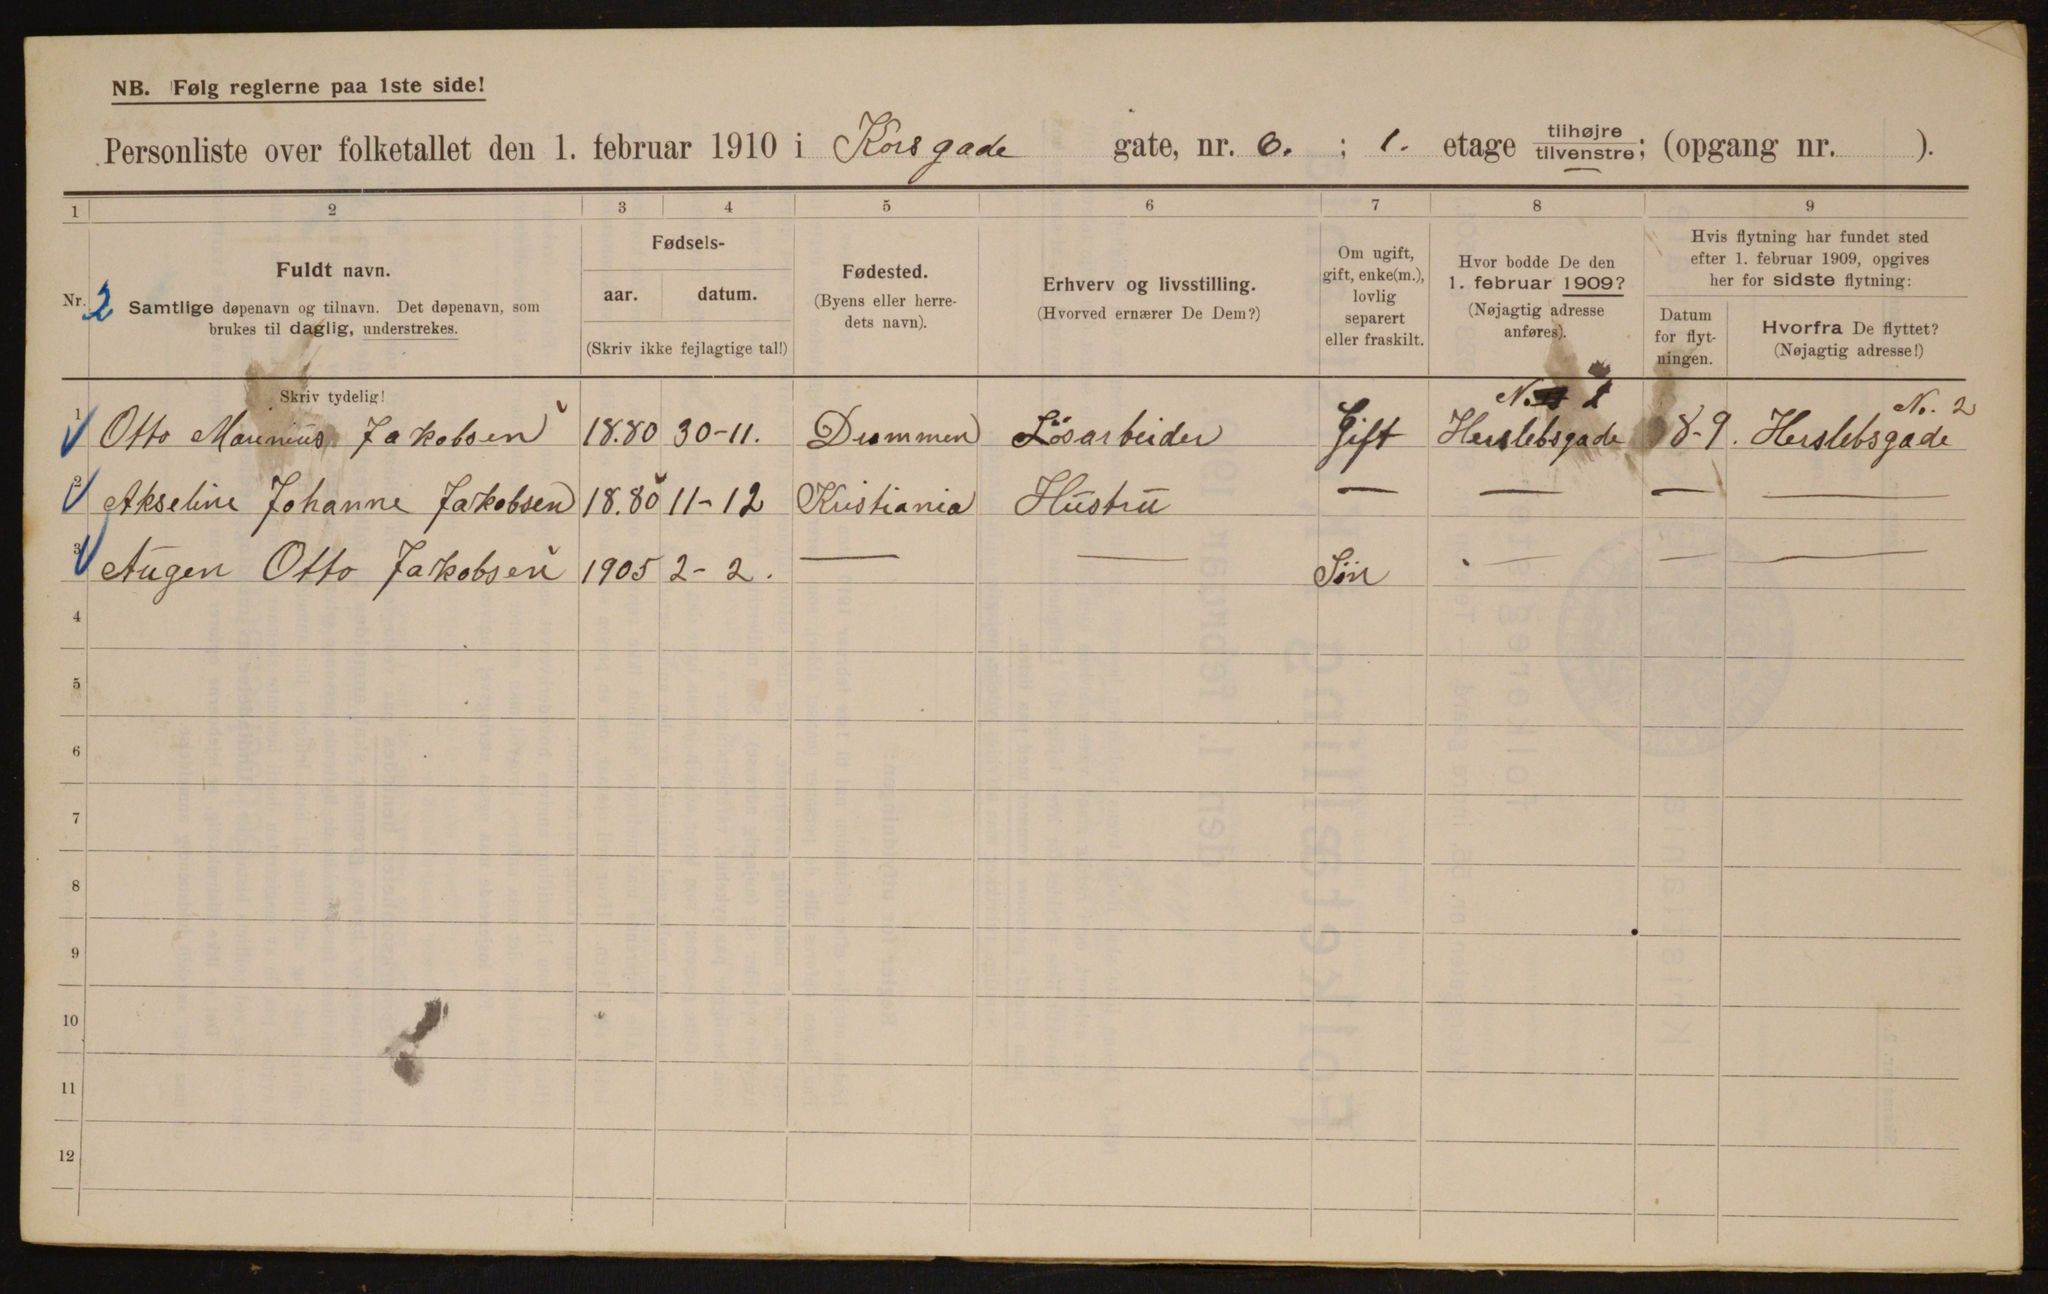 NB. Følg reglerne paa 1ste side!
Personliste over folketallet den 1. februar 1910 i Korsgade gate, nr. 6. ; 1. etage tilhøjre tilvenstre; (opgang nr. ).
1 2 3 4 5 6 7 8 9
Nr. 2
Fuldt navn.
Samtlige døpenavn og tilnavn. Det døpenavn, som
brukes til daglig, understrekes.
Skriv tydelig!
Fødsels-
aar. datum.
(Skriv ikke fejlagtige tal!)
Fødested.
(Byens eller herre-
dets navn).
Erhverv og livsstilling.
(Hvorved ernærer De Dem?)
Om ugift,
gift, enke(m.),
lovlig
separert
eller fraskilt.
Hvor bodde De den
1. februar 1909?
(Nøjagtig adresse
anføres).
Hvis flytning har fundet sted
efter 1. februar 1909, opgives
her for sidste flytning:
Datum
for flyt-
ningen.
Hvorfra De flyttet?
(Nøjagtig adresse!)
1 Otto Marinius Jakobsen 18.80 30-11. Drammen Løsarbeider Gift Herslebsgade 18-9. Herslebsgade No. 2
2 Akseline Johanne Jakobsen 18.80 11-12 Kristiania Hustru — — — —
3 Augen Otto Jakobsen 1905 2-2. — — Søn — — —
4
5
6
7
8
9
10
11
12